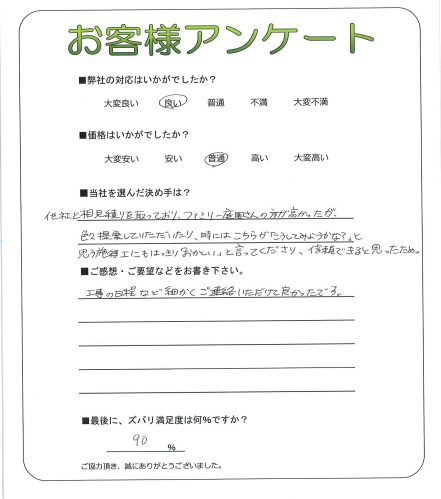 お客様アンケート
■弊社の対応はいかがでしたか？
大変良い 良い 普通 不満 大変不満
■価格はいかがでしたか？
大変安い 安い 普通 高い 大変高い
■当社を選んだ決め手は？
他社と相見積りを取っており、ファミリー庭園さんの方が高かったが、
色々提案していただいたり、時にはこちらが「こうしてみようかな？」と
思う施工にもはっきり「おかしい」と言ってくださり、信頼できると思ったため。
■ご感想・ご要望などをお書き下さい。
工事の日程など細かくご連絡いただけて良かったです。
■最後に、ズバリ満足度は何%ですか？
90 %
ご協力頂き、誠にありがとうございました。